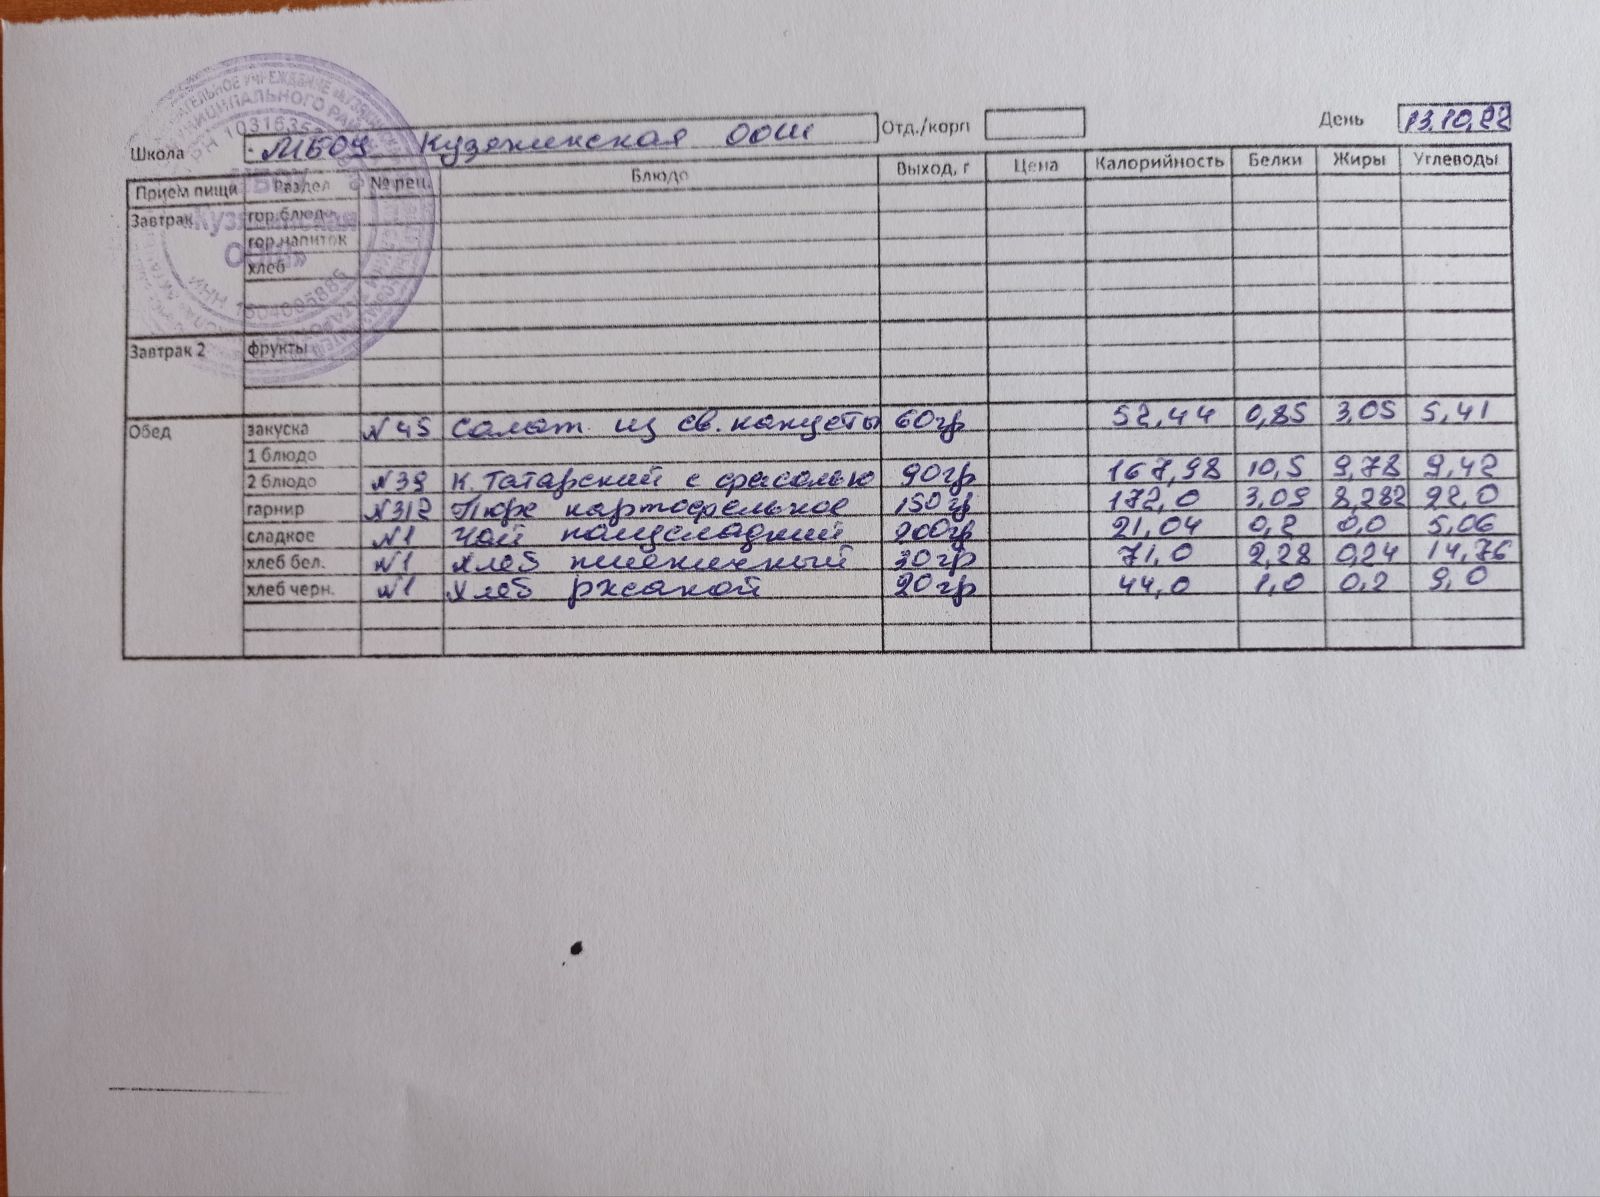 Школа МБОУ Кузякинская ООШ Отд./корп День 13.10.22
Прием пищи Раздел № рец. Блюдо Выход, г Цена Калорийность Белки Жиры Углеводы
Завтрак гор.блюдо
гор.напиток
хлеб
Завтрак 2 фрукты
Обед закуска №45 Салат из св. капусты 60гр 52,44 0,85 3,05 5,41
1 блюдо
2 блюдо №39 К. Татарский с фасолью 90гр 167,98 10,5 9,78 9,42
гарнир №312 Пюре картофельное 150гр 172,0 3,09 8,282 22,0
сладкое №1 Чай полусладкий 200гр 21,04 0,2 0,0 5,06
хлеб бел. №1 Хлеб пшеничный 30гр 71,0 2,28 0,24 14,76
хлеб черн. №1 Хлеб ржаной 20гр 44,0 1,0 0,2 9,0
МБОУ
«Кузякинская
ООШ»